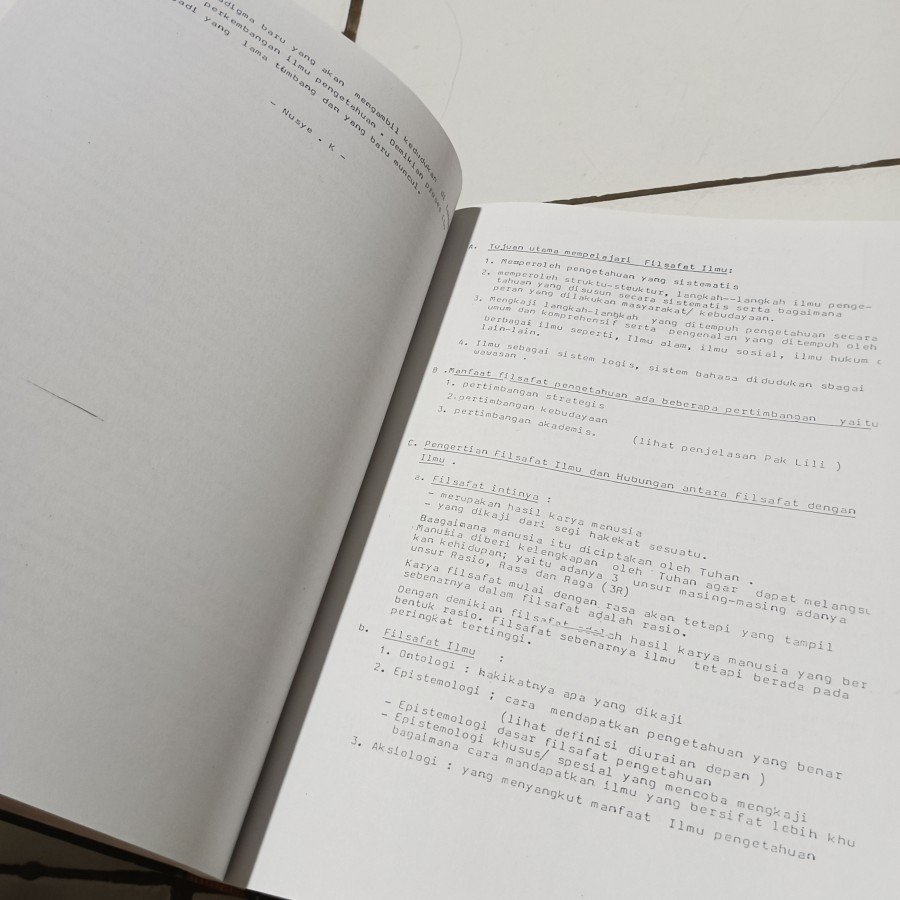 adigma baru yang akan mengambil kedudukan di
perkembangan ilmu pengetahuan . Demikian proses
jadi yang lama tumbang dan yang baru muncul.
- Nusye . K -
A. Tujuan utama mempelajari Filsafat Ilmu:
1. Memperoleh pengetahuan yang sistematis
2. memperoleh struktu-steuktur, langkah--langkah ilmu penge-
tahuan yang disusun secara sistematis serta bagaimana
peran yang dilakukan masyarakat/ kebudayaan.
3. Mengkaji langkah-langkah yang ditempuh pengetahuan secara
umum dan komprehensif serta pengenalan yang ditempuh oleh
berbagai ilmu seperti, Ilmu alam, ilmu sosial, ilmu hukum d
lain-lain.
4. Ilmu sebagai sistem logis, sistem bahasa didudukan sbagai
wawasan .
B .Manfaat filsafat pengetahuan ada beberapa pertimbangan yaitu
1. pertimbangan strategis
2.pertimbangan kebudayaan
3. pertimbangan akademis.
(lihat penjelasan Pak Lili )
C. Pengertian Filsafat Ilmu dan Hubungan antara Filsafat dengan
Ilmu .
a. Filsafat intinya :
- merupakan hasil karya manusia
- yang dikaji dari segi hakekat sesuatu.
Baagaimana manusia itu diciptakan oleh Tuhan .
Manusia diberi kelengkapan oleh Tuhan agar dapat melangsu
kan kehidupan; yaitu adanya 3 unsur masing-masing adanya
unsur Rasio, Rasa dan Raga (3R)
Karya filsafat mulai dengan rasa akan tetapi yang tampil
sebenarnya dalam filsafat adalah rasio.
Dengan demikian filsafat adalah hasil karya manusia yang ber
bentuk rasio. Filsafat sebenarnya ilmu tetapi berada pada
peringkat tertinggi.
b. Filsafat Ilmu :
1. Ontologi : hakikatnya apa yang dikaji
2. Epistemologi ; cara mendapatkan pengetahuan yang benar
(lihat definisi diuraian depan )
- Epistemologi dasar filsafat pengetahuan
- Epistemologi khusus/ spesial yang mencoba mengkaji
bagaimana cara mandapatkan ilmu yang bersifat lebih khu
3. Aksiologi : yang menyangkut manfaat Ilmu pengetahuan